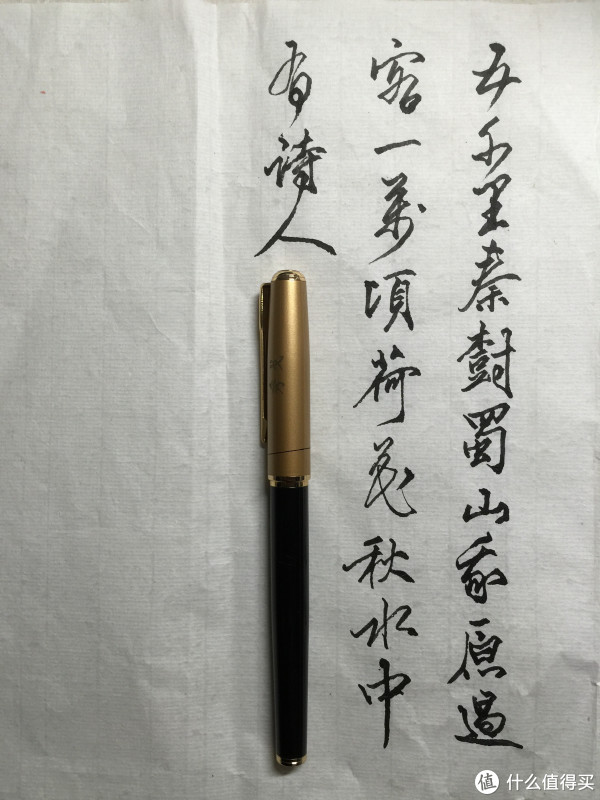 五千里秦樹蜀山我原過
客一萬頃荷花秋水中
有詩人
值 什么值得买